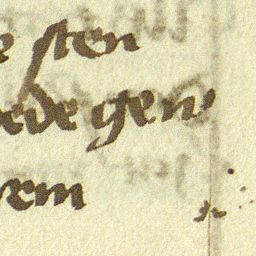 e sten
ede gen
rem